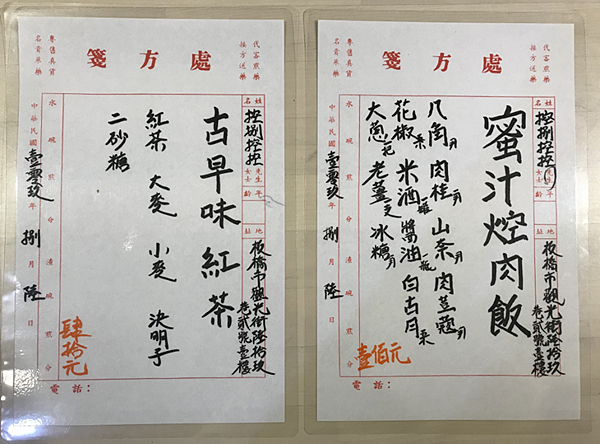 處方箋
代客煎藥
接方送藥
專售真貨
姓名 控捌控控 先生 女士 年齡 地址 板橋市觀光街陸拾玖
巷貳號壹樓
蜜汁焢肉飯
八角 肉桂 山柰 肉荳蔻
花椒 米酒 醬油
大蔥 老薑 冰糖
壹佰元
水 碗煎 分 渣 碗煎 分
中華民國壹零玖年捌月陸日
電話：
處方箋
代客煎藥
接方送藥
專售真貨
姓名 控捌控控 先生 女士 年齡 地址 板橋市觀光街陸拾玖
巷貳號壹樓
古早味紅茶
紅茶 大麥 小麥 決明子
二砂糖
肆拾元
水 碗煎 分 渣 碗煎 分
中華民國壹零玖年捌月陸日
電話：